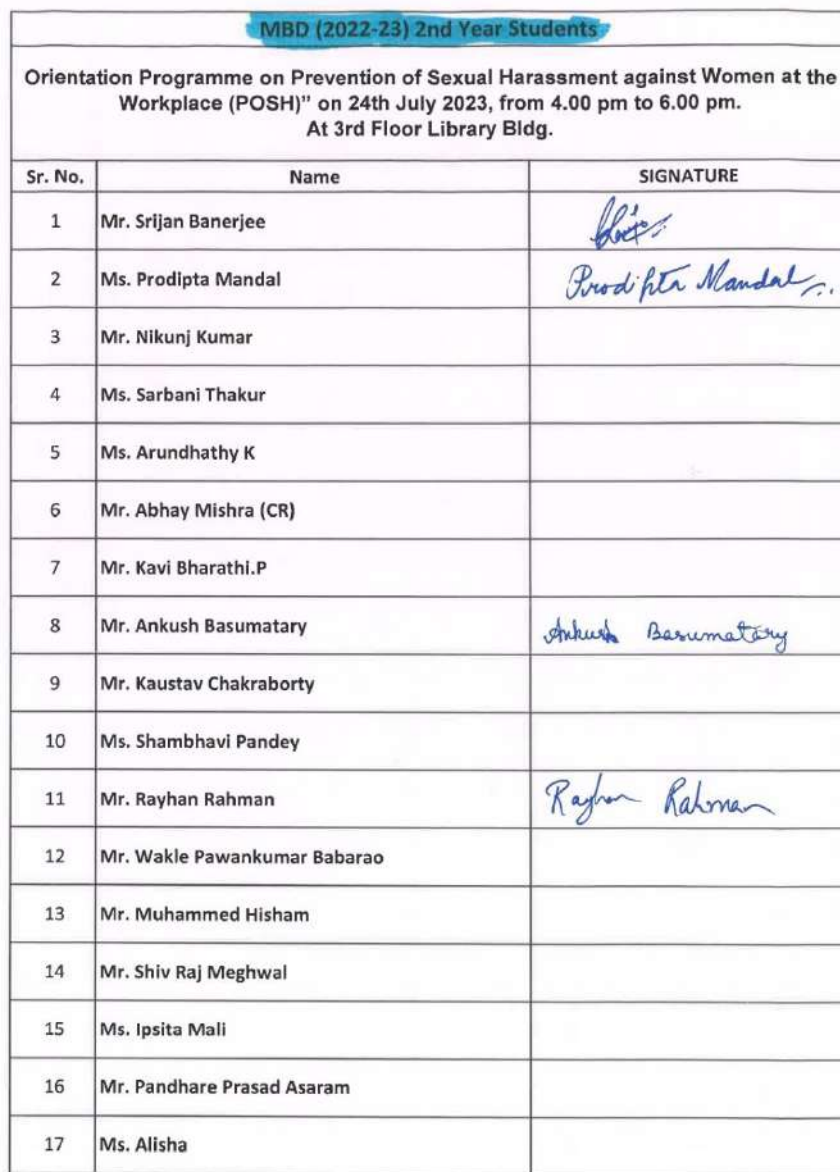 MBD (2022-23) 2nd Year Students
Orientation Programme on Prevention of Sexual Harassment against Women at the
Workplace (POSH)" on 24th July 2023, from 4.00 pm to 6.00 pm.
At 3rd Floor Library Bldg.
Sr. No. Name SIGNATURE
1 Mr. Srijan Banerjee
2 Ms. Prodipta Mandal Prodipta Mandal
3 Mr. Nikunj Kumar
4 Ms. Sarbani Thakur
5 Ms. Arundhathy K
6 Mr. Abhay Mishra (CR)
7 Mr. Kavi Bharathi.P
8 Mr. Ankush Basumatary Ankush Basumatary
9 Mr. Kaustav Chakraborty
10 Ms. Shambhavi Pandey
11 Mr. Rayhan Rahman Rayhan Rahman
12 Mr. Wakle Pawankumar Babarao
13 Mr. Muhammed Hisham
14 Mr. Shiv Raj Meghwal
15 Ms. Ipsita Mali
16 Mr. Pandhare Prasad Asaram
17 Ms. Alisha